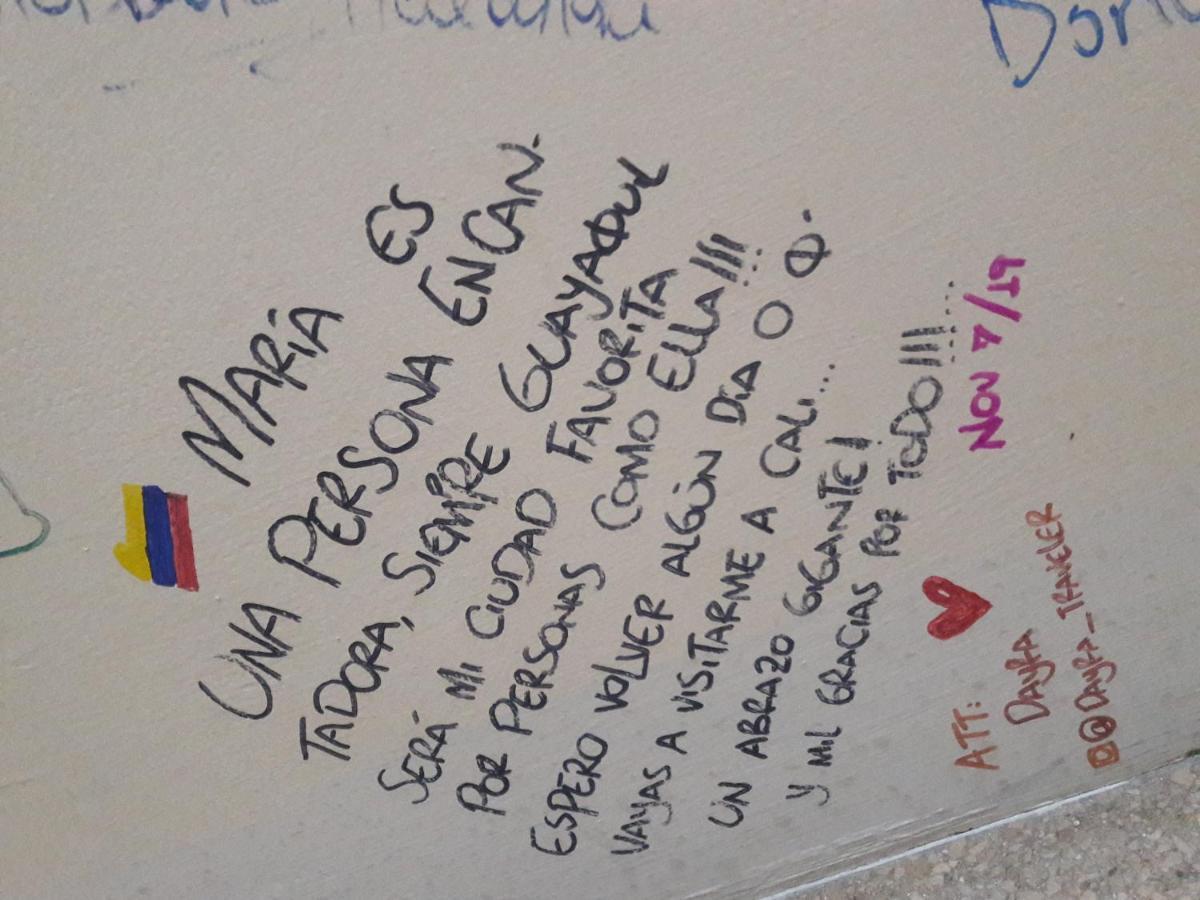 MARÍA ES
UNA PERSONA ENCAN-
TADORA, SIEMPRE GUAYAQUIL
SERÁ MI CIUDAD FAVORITA
POR PERSONAS COMO ELLA!!!
ESPERO VOLVER ALGÚN DÍA O Q-
VAYAS A VISITARME A CALI...
UN ABRAZO GIGANTE!
Y MIL GRACIAS POR TODO!!!...
NOV 7/19
ATT:
DAYRA
@DAYRA_TRAVELER